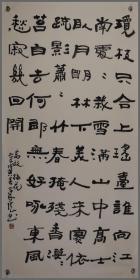 瓊枝只合上瑤臺誰向江
南處々栽雪滿山中高士
臥月明林下美人來寒依
疏影蕭々竹春掩殘香漠々
苔自去何郎無好詠東風
愁寂幾回開
高啟梅花